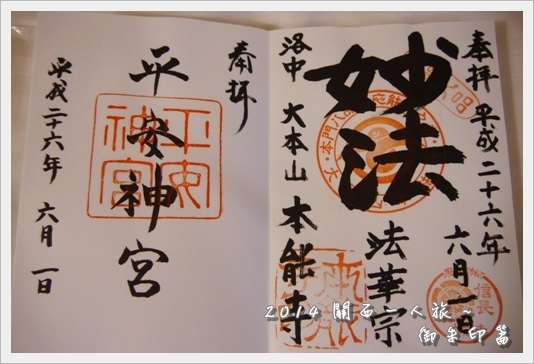 奉拝 平成二十六年
六月一日
妙法
法華宗
洛中 大本山 本能寺
信長
奉拝
平安神宮
平安神宮
平成二十六年 六月一日
2014 關西一人旅~
御朱印篇